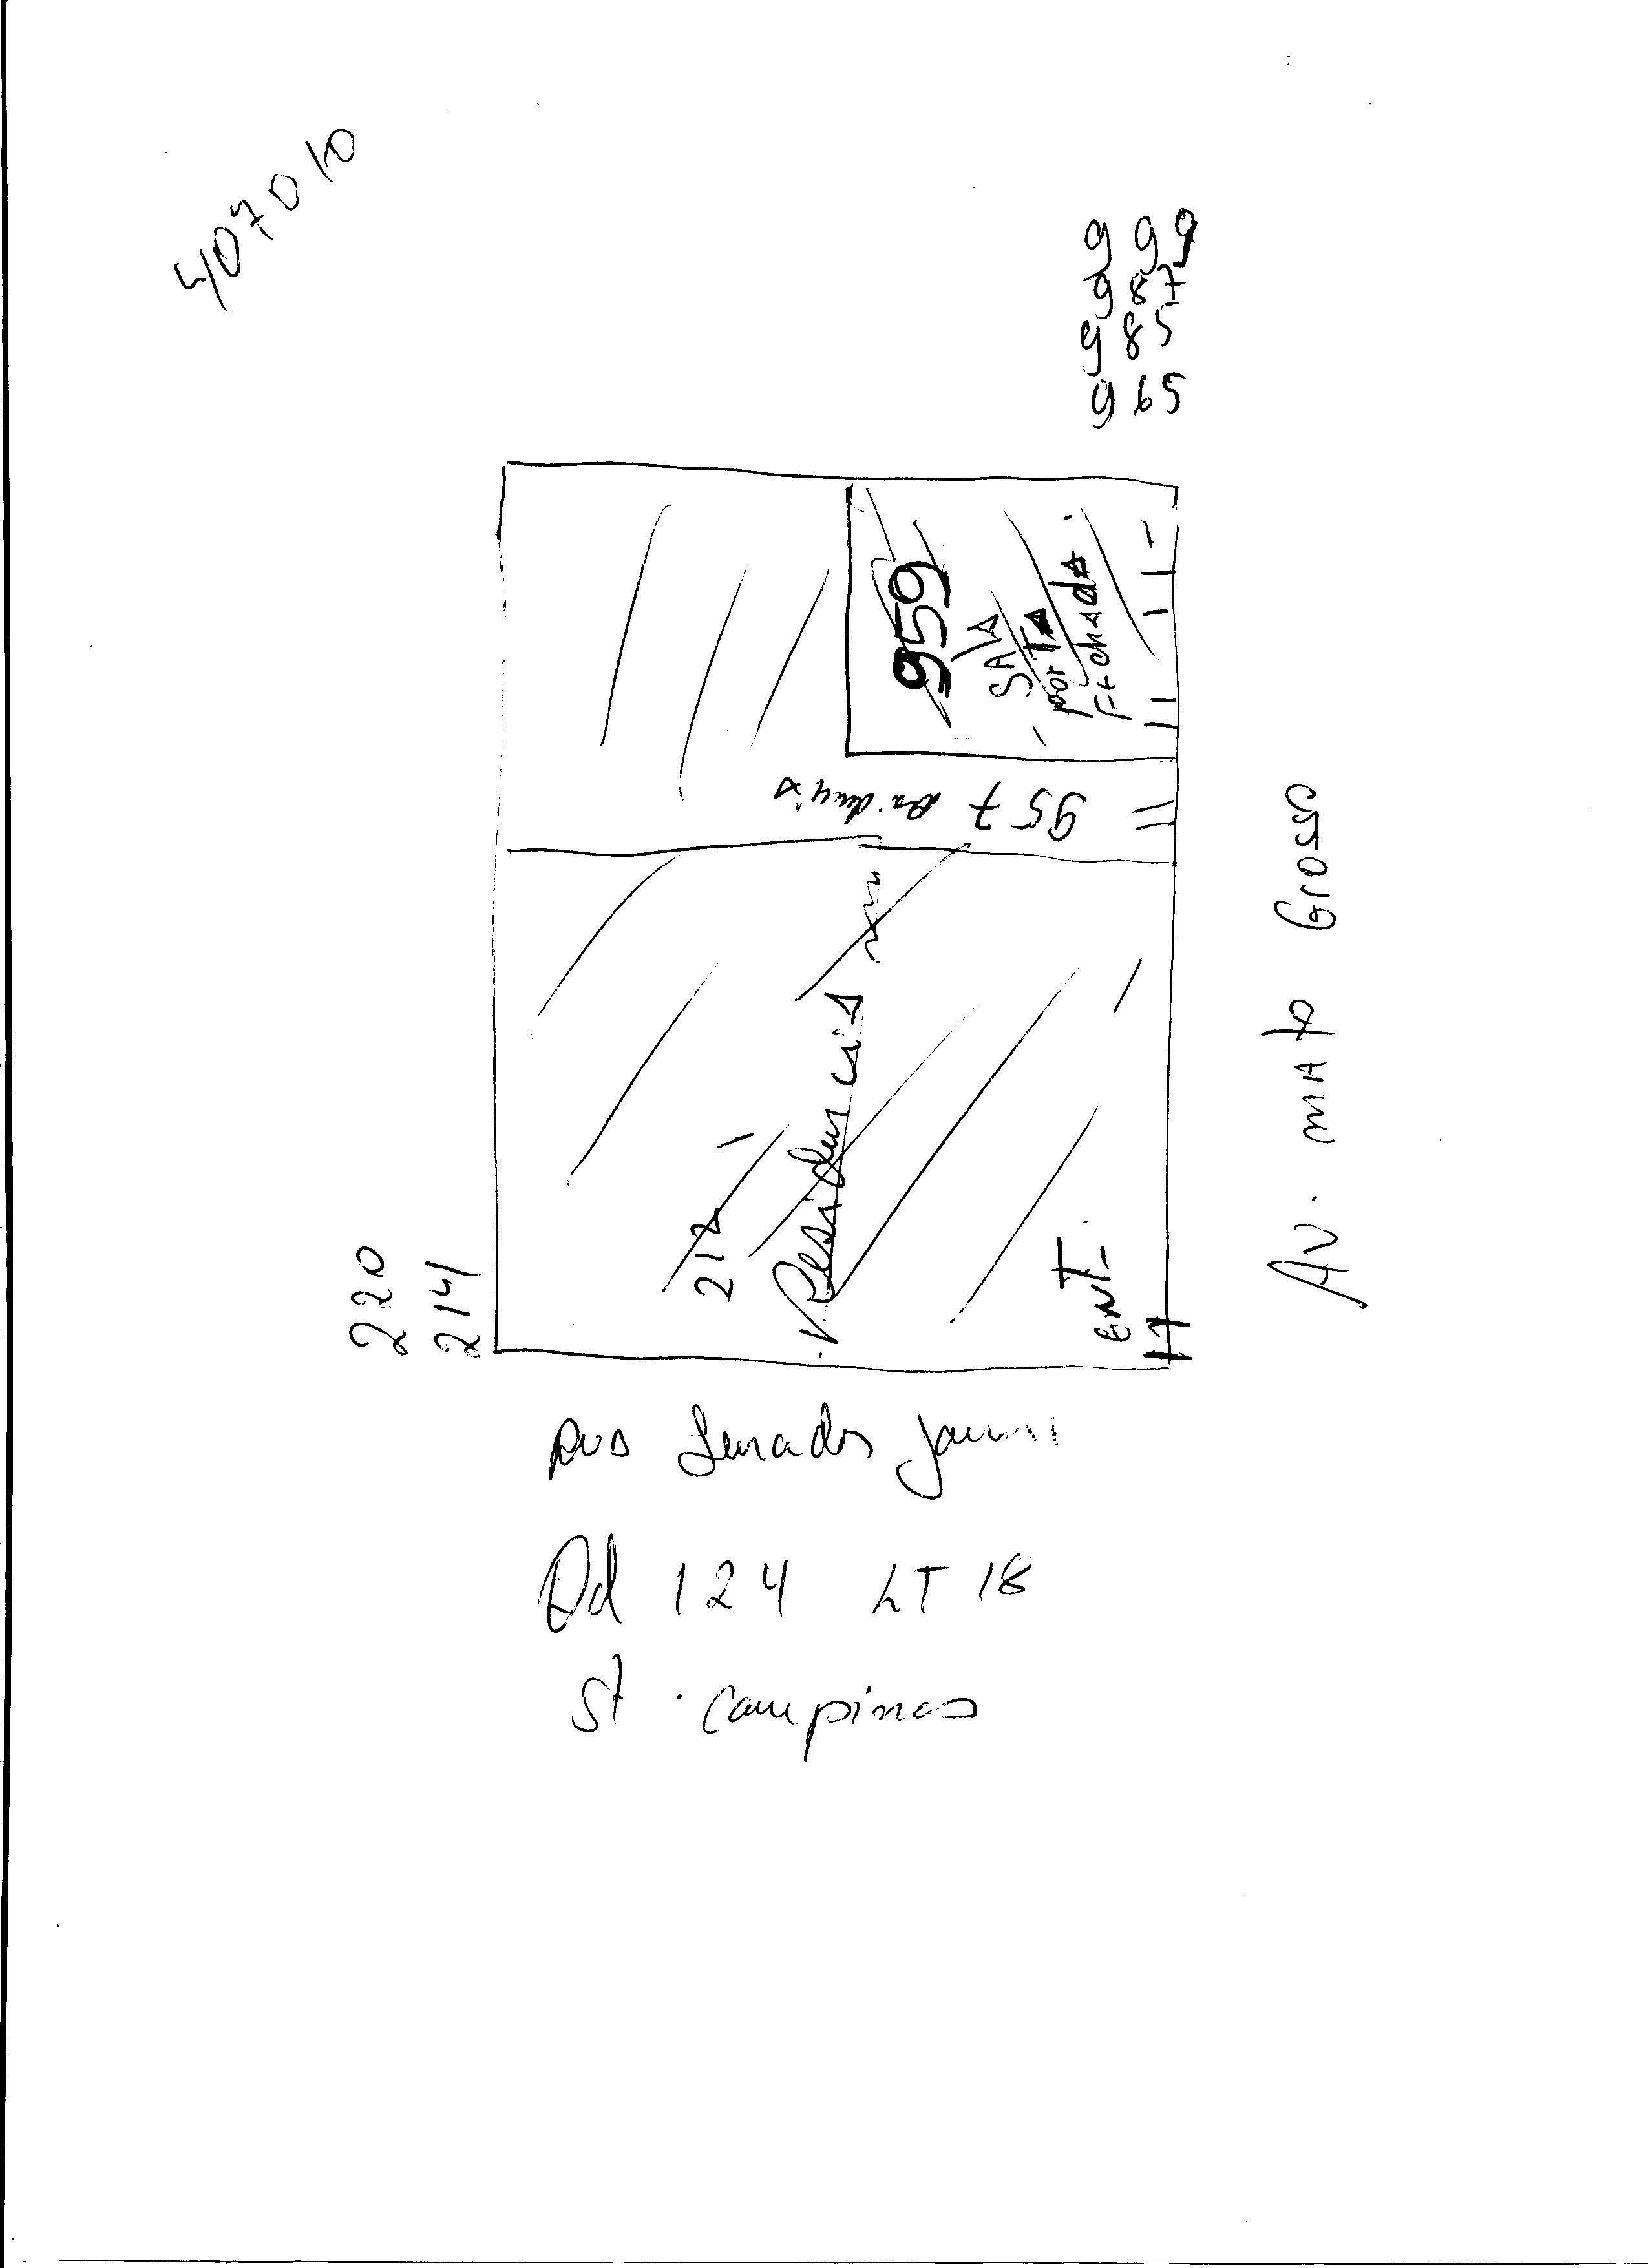 407010
999
987
985
965
959
SALA
porTA
FechadA
957
Residencia
212
ENT.
220
214
Av. MATO Grosso
RUA Senador
Qd 124 LT 18
St. campinas